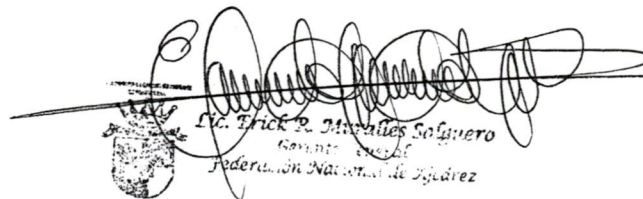 Lic. Erick R. Muralles Salguero
Gerente General
Federación Nacional de Ajedrez